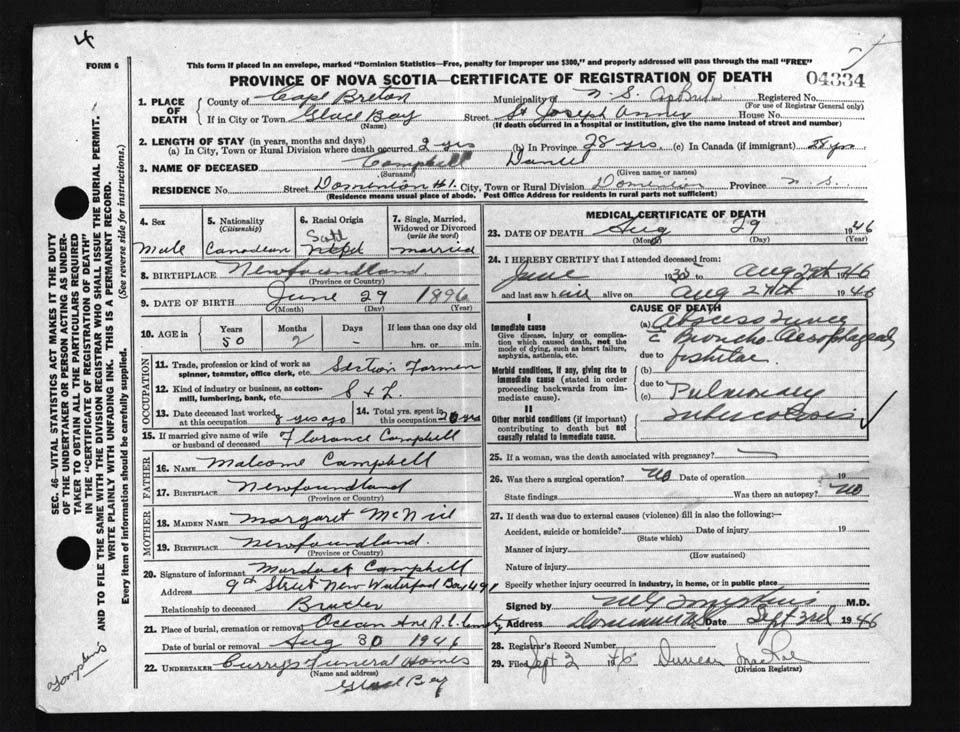 4
FORM 6
This form if placed in an envelope, marked "Dominion Statistics—Free, penalty for improper use $300," and properly addressed will pass through the mail "FREE"
PROVINCE OF NOVA SCOTIA—CERTIFICATE OF REGISTRATION OF DEATH 04334
1. PLACE OF DEATH
County of Cape Breton Municipality of N. S. Registered No.
(For use of Registrar General only)
If in City or Town Glace Bay Street St Joseph House No.
(Name) (If death occurred in a hospital or institution, give the name instead of street and number)
2. LENGTH OF STAY (in years, months and days)
(a) In City, Town or Rural Division where death occurred 2 yrs (b) In Province 28 yrs. (c) In Canada (if immigrant) 28 yrs
3. NAME OF DECEASED Campbell Daniel
(Surname) (Given name or names)
RESIDENCE No. Street Dominion #1. City, Town or Rural Division Dominion Province N. S.
(Residence means usual place of abode. Post Office Address for residents in rural parts not sufficient)
4. Sex
Male
5. Nationality
(Citizenship)
Canadian
6. Racial Origin
Scott
Nfld
7. Single, Married, Widowed or Divorced
(write the word)
married
8. BIRTHPLACE Newfoundland.
(Province or Country)
9. DATE OF BIRTH June 29 1896
(Month) (Day) (Year)
10. AGE in Years Months Days If less than one day old
50 2 - hrs. or min.
OCCUPATION
11. Trade, profession or kind of work as spinner, teamster, office clerk, etc. Section Formen
12. Kind of industry or business, as cotton-mill, lumbering, bank, etc. S & L.
13. Date deceased last worked at this occupation 8 yrs ago
14. Total yrs. spent in this occupation 20 yrs
15. If married give name of wife or husband of deceased Florance Campbell
FATHER
16. NAME Malcome Campbell
17. BIRTHPLACE Newfoundland
(Province or Country)
MOTHER
18. MAIDEN NAME Margaret McNeil
19. BIRTHPLACE Newfoundland.
(Province or Country)
20. Signature of informant Murdock Campbell
Address 9th Street New Waterford Box 498
Relationship to deceased Brother
21. Place of burial, cremation or removal Ocean Ave R.C. Cemetry
Date of burial or removal Aug 30 1946
22. UNDERTAKER Curry's Funeral Homes
(Name and address)
Glace Bay
MEDICAL CERTIFICATE OF DEATH
23. DATE OF DEATH Aug 29 1946
(Month) (Day) (Year)
24. I HEREBY CERTIFY that I attended deceased from:
June 1938 to Aug 1946
and last saw him alive on Aug 27th 1946
CAUSE OF DEATH
I
Immediate cause
Give disease, injury or complication which caused death, not the mode of dying, such as heart failure, asphyxia, asthenia, etc.
(a) Abscess Lung
c Broncho-Aesophageal
due to fistulae
Morbid conditions, if any, giving rise to immediate cause (stated in order proceeding backwards from immediate cause).
(b)
due to
(c) Pulmonary
tuberculosis
II
Other morbid conditions (if important) contributing to death but not causally related to immediate cause.
25. If a woman, was the death associated with pregnancy?
26. Was there a surgical operation? No Date of operation 19
State findings Was there an autopsy? No
27. If death was due to external causes (violence) fill in also the following:—
Accident, suicide or homicide? Date of injury 19
(State which)
Manner of injury
(How sustained)
Nature of injury
Specify whether injury occurred in industry, in home, or in public place
Signed by M G Tompkins M.D.
Address Dominion N.S. Date Sept 2nd 1946
28. Registrar's Record Number
29. Filed Sept 2 1946 Duncan MacNeil
(Division Registrar)
SEC. 46—VITAL STATISTICS ACT MAKES IT THE DUTY
OF THE UNDERTAKER OR PERSON ACTING AS UNDER-
TAKER TO OBTAIN ALL THE PARTICULARS REQUIRED
IN THE "CERTIFICATE OF REGISTRATION OF DEATH"
AND TO FILE THE SAME WITH THE DIVISION REGISTRAR WHO SHALL ISSUE THE BURIAL PERMIT.
WRITE PLAINLY WITH UNFADING INK. THIS IS A PERMANENT RECORD.
Every item of information should be carefully supplied. (See reverse side for instructions.)
Tompkins